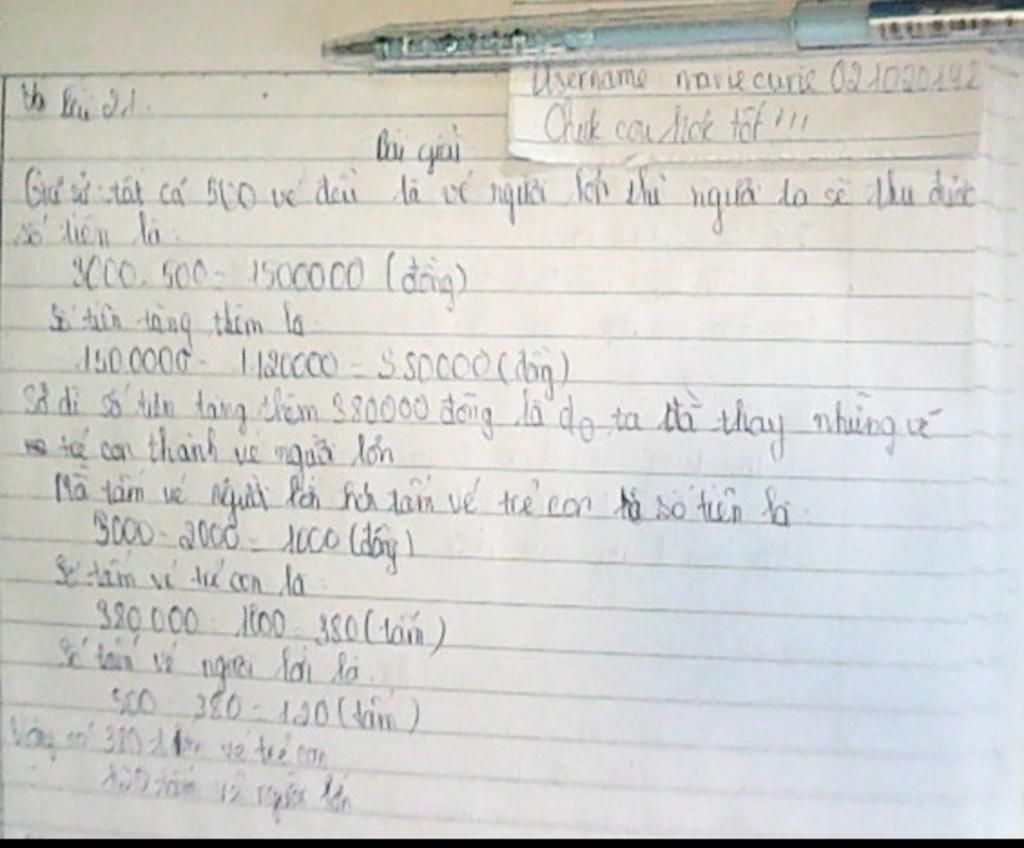 Username mariecurie 021020142
Chúk các tick tốt !!!
Bài 21.
Bài giải
Giả sử tất cả 500 vé đều là vé người lớn thì người ta sẽ thu được
số tiền là.
3000. 500 = 1500000 (đồng)
Số tiền tăng thêm là
1500000 - 1120000 = 380000 (đồng)
Sở dĩ số tiền tăng thêm 380000 đồng là do ta đã thay những vé
trẻ con thành vé người lớn
Mỗi tấm vé người lớn hơn tấm vé trẻ con số tiền là
3000 - 2000 = 1000 (đồng)
Số tấm vé trẻ con là
380 000 : 1000 = 380 (tấm)
Số tấm vé người lớn là.
500 - 380 = 120 (tấm)
Vậy có 380 tấm vé trẻ con
120 tấm vé người lớn